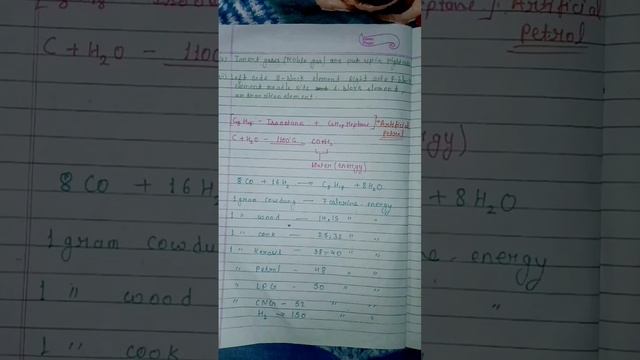 Inert gases (Noble gas) are put up in Right side
Left side S-block element Right side P-block
element middle site d block element
and transition element.
[C8H18 - Isooctane + C7H16 Heptane] = Artificial
Petrol
C + H2O - 1100°C CO+H2
Water (energy)
8 CO + 16 H2 → C8H18 + 8H2O
1 gram cowdung - 7 calories energy
1 " wood - 14,15 " "
1 " cook - 25,32 " "
1 " Kerosil - 38-40 " "
" Petrol - 48 " "
" LPG - 50 " "
" CNG - 52 " "
H2 → 150 " "